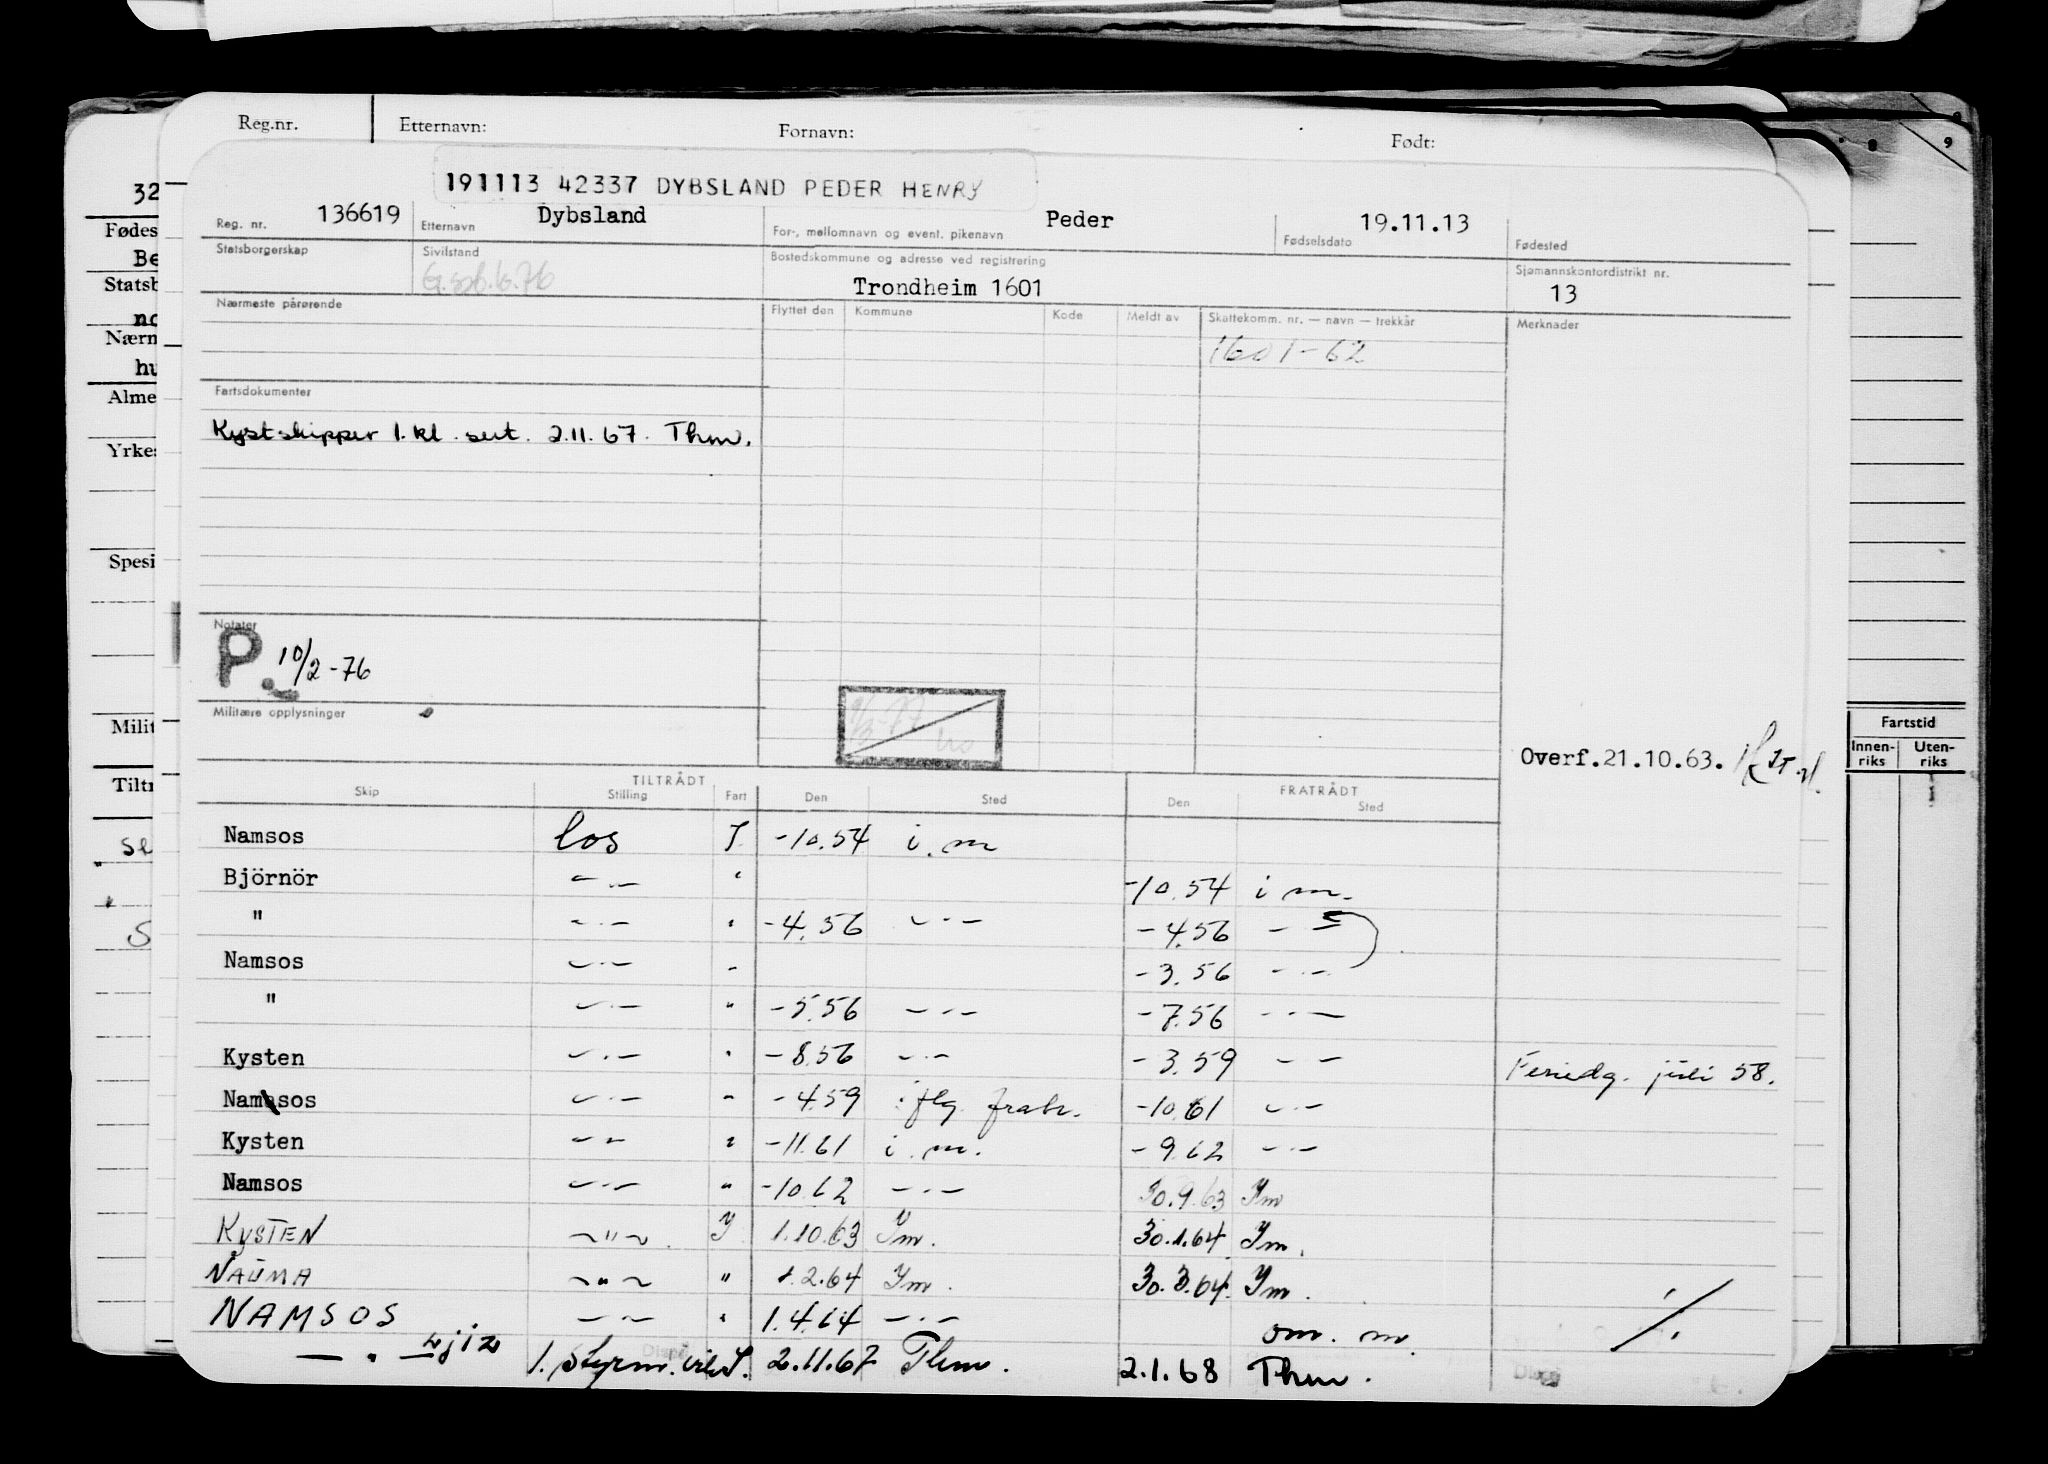 Reg.nr. Etternavn: Fornavn: Født:
191113 42337 DYBSLAND PEDER HENRY
Reg. nr. 136619 Etternavn Dybsland For-, mellomnavn og event. pikenavn Peder Fødselsdato 19.11.13 Fødested
Statsborgerskap Sivilstand Bostedskommune og adresse ved registrering Trondheim 1601 Sjømannskontordistrikt nr. 13
Nærmeste pårørende Flyttet den Kommune Kode Meldt av Skattekomm. nr. — navn — trekkår Merknader
1601-62
Fartsdokumenter
Kystskipper 1. kl. sert. 2.11.67. Thm.
Notater
P. 10/2-76
Militære opplysninger
Overf.21.10.63.
TILTRÅDT FRATRÅDT
Skip Stilling Fart Den Sted Den Sted
Namsos los I -10.54 i. m
Björnör —"— " -10.54 i m.
" —"— " -4.56 —"— -4.56 —"—
Namsos —"— " -3.56 —"—
" —"— " -5.56 —"— -7.56 —"—
Kysten —"— " -8.56 —"— -3.59 —"— Feriedg. juli 58.
Namsos —"— " -4.59 i flg. frakr. -10.61 —"—
Kysten —"— " -11.61 i. m. -9.62 —"—
Namsos —"— " -10.62 —"— 30.9.63 Ym
KYSTEN —"— Y 1.10.63 Ym. 30.1.64 Ym.
NAUMA —"— " 1.2.64 Ym. 30.3.64. Ym.
NAMSOS —"— " 1.4.64 —"— om. m.
—"— LJIZ 1. styrm. I. 2.11.67 Thm. 2.1.68 Thm.
32
Fødes
Be
Statsb
no
Nærn
hu
Alme
Yrkes
Spesi
Milit
Tiltr
Fartstid
Innen-riks Uten-riks
9